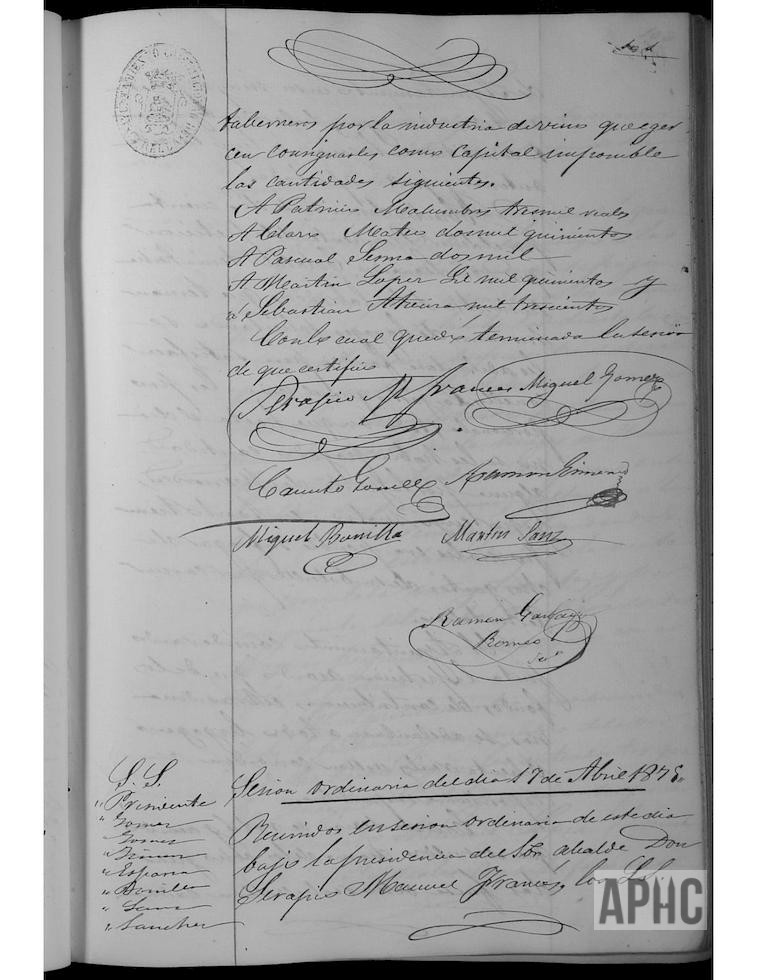 taberneros por la industria de vino que eger
cen consignarles como capital imponible
las cantidades siguientes.
A Patricio Malumbres tresmil reales
A Claro Mateo dosmil quinientos
A Pascual Serna dosmil
A Martin Lopez Gil mil quinientos y
a Sebastian mil trescientos
Con lo cual quedó terminada la sesión
de que certifico
Serapio M. Frances Miguel Gomez
Canuto Ramon Gimeno
Miguel Bonilla Martin Sanz
Ramon
Romeo
Serº
S. S.
" Presidente
" Gomez
" Gomez
" Gimeno
" España
" Bonilla
" Sanz
" Sanchez
Sesion ordinaria del dia 17 de Abril 1875.
Reunidos en sesion ordinaria de este dia
bajo la presidencia del Sor. alcalde Don
Serapio Manuel Frances, los S.S.
APHC